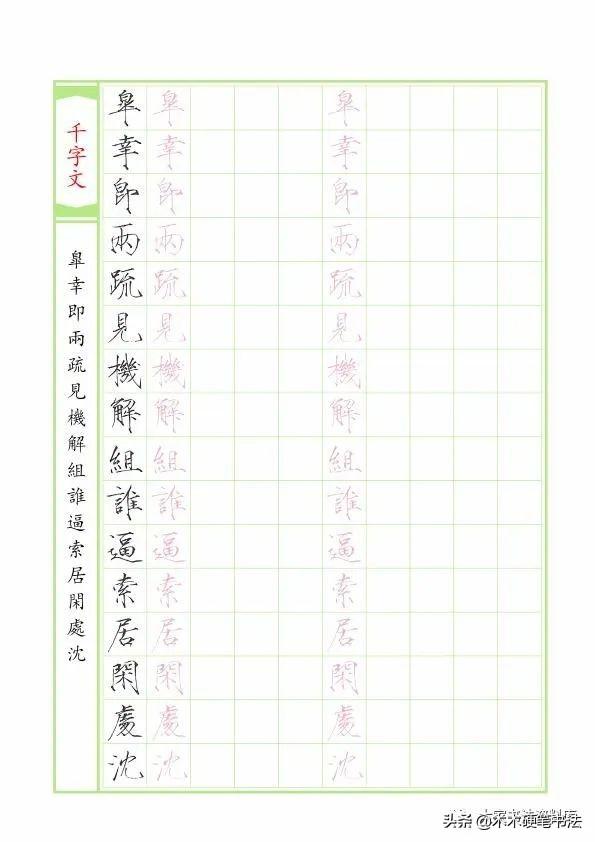 千字文
皐幸即兩疏見機解組誰逼索居閑處沈
皐幸即兩疏見機解組誰逼索居閑處沈
皐幸即兩疏見機解組誰逼索居閑處沈
皐幸即兩疏見機解組誰逼索居閑處沈
头条 @木木硬笔书法